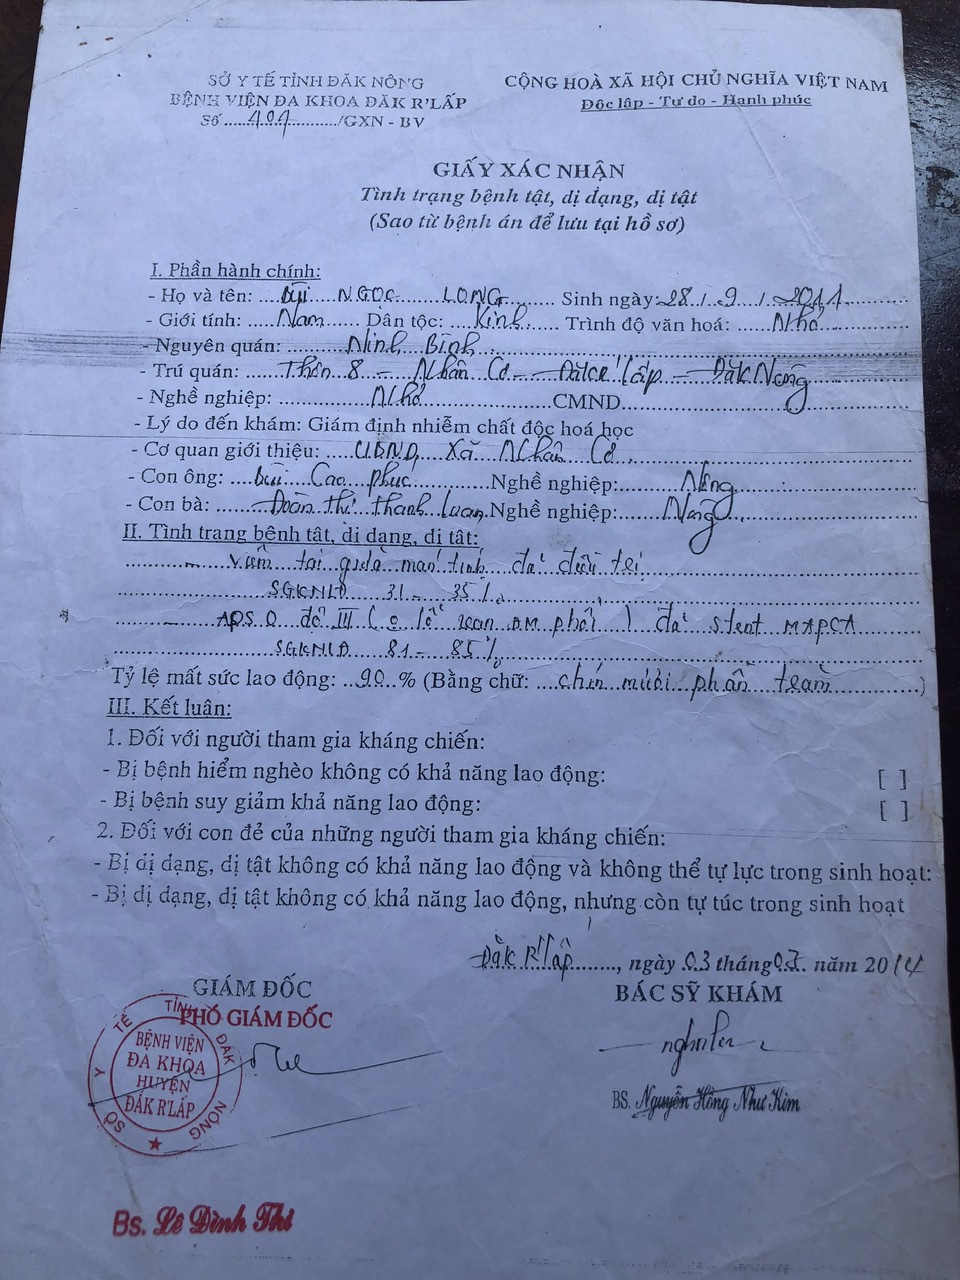 SỞ Y TẾ TỈNH ĐĂK NÔNG
BỆNH VIỆN ĐA KHOA ĐĂK R'LẤP
Số.....404............/GXN - BV
CỘNG HOÀ XÃ HỘI CHỦ NGHĨA VIỆT NAM
Độc lập - Tự do - Hạnh phúc
GIẤY XÁC NHẬN
Tình trạng bệnh tật, dị dạng, dị tật
(Sao từ bệnh án để lưu tại hồ sơ)
I. Phần hành chính:
- Họ và tên: Bùi NGỌC LONG Sinh ngày: 28 / 9 / 2011
- Giới tính: Nam Dân tộc: Kinh Trình độ văn hoá: Nhỏ
- Nguyên quán: Ninh Bình
- Trú quán: Thôn 8 - Nhân Cơ - Đăk R'lấp - Đăk Nông
- Nghề nghiệp: Nhỏ CMND
- Lý do đến khám: Giám định nhiễm chất độc hoá học
- Cơ quan giới thiệu: UBND Xã Nhân Cơ
- Con ông: Bùi Cao Phúc Nghề nghiệp: Nông
- Con bà: Đoàn Thị Thanh Luan Nghề nghiệp: Nông
II. Tình trạng bệnh tật, dị dạng, dị tật:
Viêm tai giữa mạn tính đã điều trị
SGKNLĐ 31 - 35%
APSO độ III ( lỗ van ĐM phổi ) đã stent MAPCA
SGKNLĐ 81 - 85%
Tỷ lệ mất sức lao động: 90 % (Bằng chữ: chín mươi phần trăm )
III. Kết luân:
1. Đối với người tham gia kháng chiến:
- Bị bệnh hiểm nghèo không có khả năng lao động: [ ]
- Bị bệnh suy giảm khả năng lao động: [ ]
2. Đối với con đẻ của những người tham gia kháng chiến:
- Bị dị dạng, dị tật không có khả năng lao động và không thể tự lực trong sinh hoạt:
- Bị dị dạng, dị tật không có khả năng lao động, nhưng còn tự túc trong sinh hoạt
Đăk R'lấp, ngày 03 tháng 07 năm 2014
GIÁM ĐỐC
PHÓ GIÁM ĐỐC
BÁC SỸ KHÁM
SỞ Y TẾ TỈNH ĐĂK NÔNG
BỆNH VIỆN
ĐA KHOA
HUYỆN
ĐĂK R'LẤP
BS. Nguyễn Hồng Như Kim
Bs. Lê Đình Thi